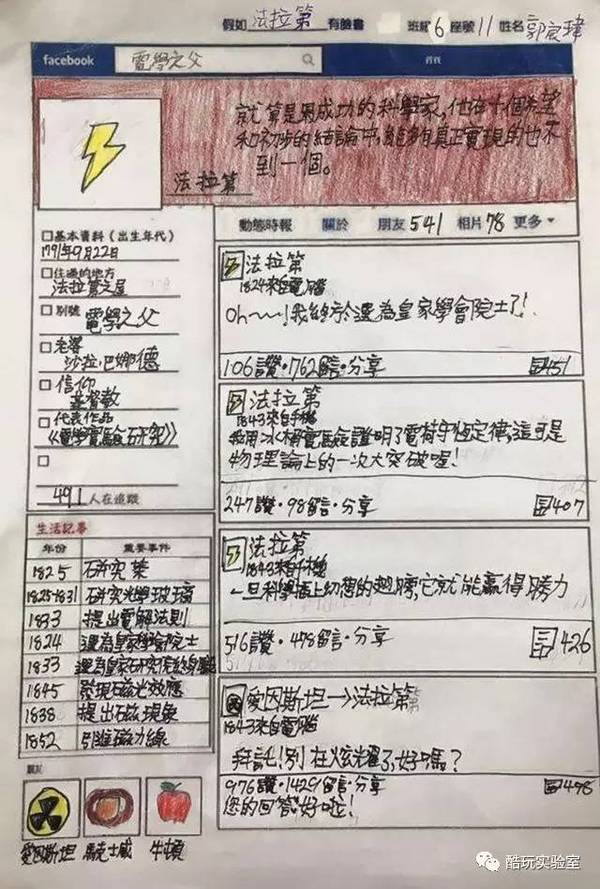 假如 法拉第 有臉書 班級6 座號11 姓名
facebook 電學之父 首頁
就算是最成功的科學家，他在十個希望
和初步的結論中，能夠真正實現的也不
到一個。
法拉第
動態時報 關於 朋友541 相片78 更多
□基本資料（出生年代）
1791年9月22日
□住過的地方
法拉第之屋
□別號
電學之父
□老婆
沙拉·巴娜德
□信仰
基督教
□代表作品
《電學實驗研究》
□
491人在追蹤
法拉第
1824來自電腦
Oh~~!我終於選為皇家學會院士了!
106讚·762留言·分享 451
法拉第
1843來自手機
我用冰桶實驗證明了電荷守恆定律,這可是
物理論上的一次大突破喔!
247讚·98留言·分享 407
法拉第
1843來自手機
一旦科學插上幻想的翅膀,它就能贏得勝力
516讚·478留言·分享 426
愛因斯坦→法拉第
1843來自電腦
拜託!別在炫耀了,好嗎?
976讚·1429留言·分享 498
您的回答好啦!
生活記事
年份 重要事件
1825 研究苯
1825-1831 研究光學玻璃
1833 提出電解法則
1824 選為皇家學會院士
1833 選為皇家研究院
1845 發現磁光效應
1838 提出磁現象
1852 引進磁力線
朋友
愛因斯坦 馬克士威 牛頓
酷玩实验室